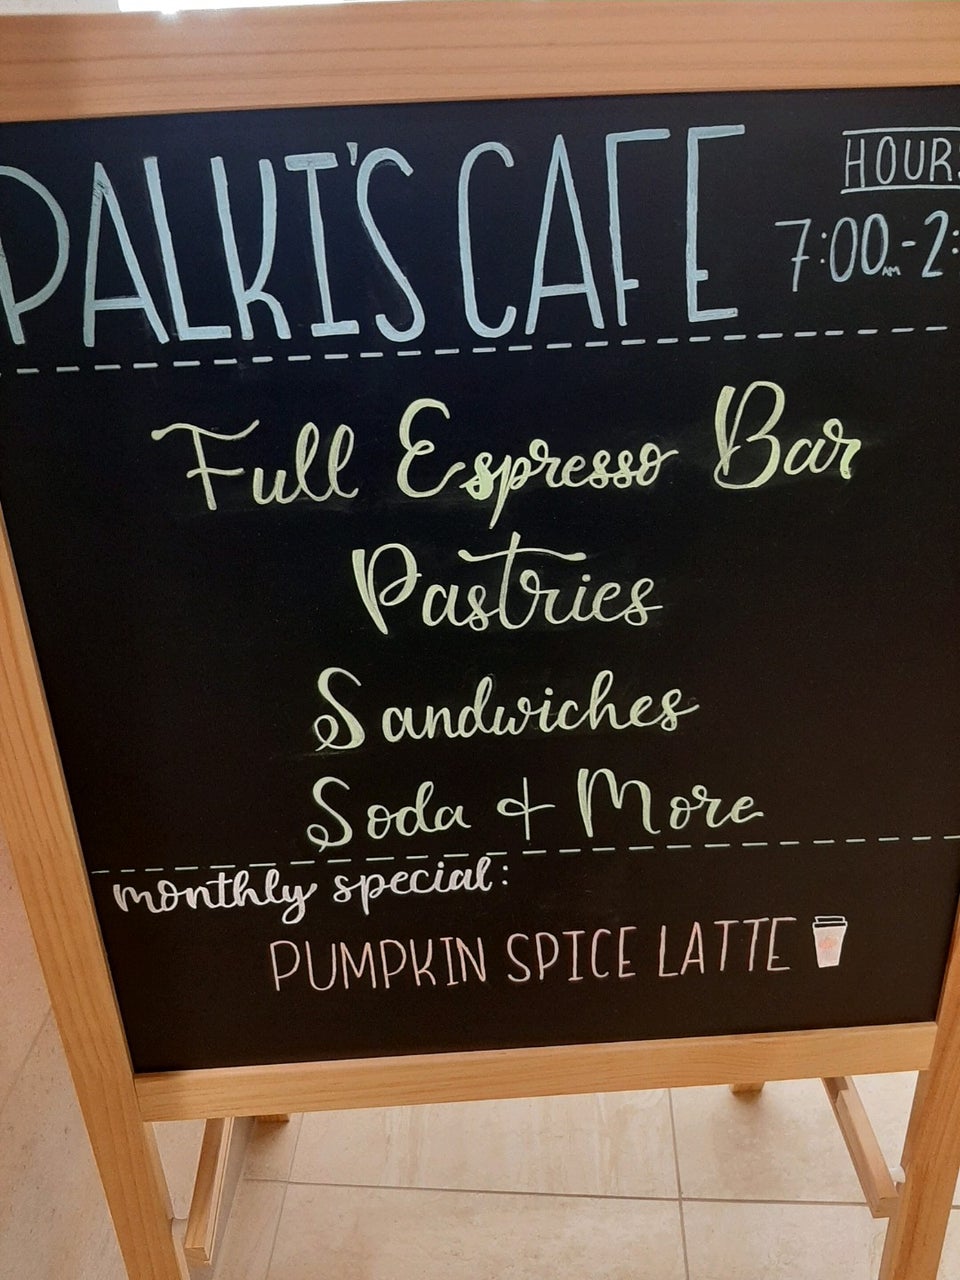 PALKI'S CAFE
HOURS
7:00AM-2:
Full Espresso Bar
Pastries
Sandwiches
Soda + More
monthly special:
PUMPKIN SPICE LATTE